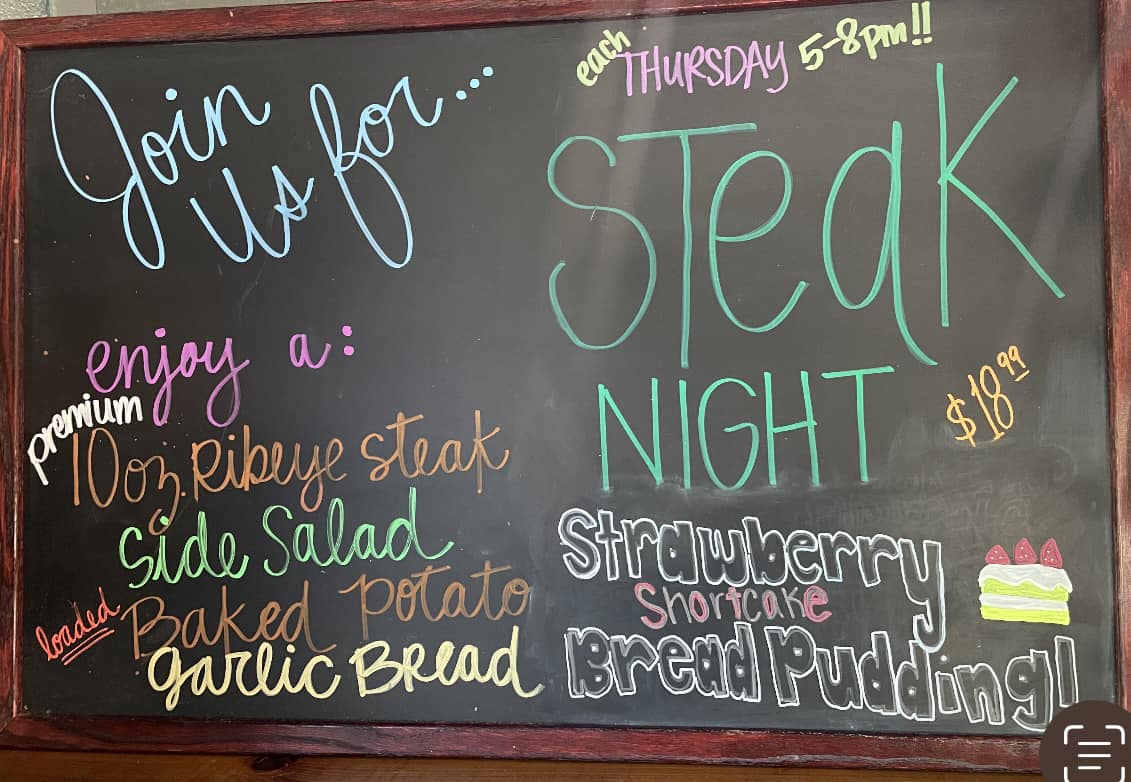 Join
us for...
enjoy a:
premium
10oz. Ribeye steak
Side Salad
loaded Baked potato
garlic Bread
each THURSDAY 5-8pm!!
STeaK
NIGHT
$18.99
Strawberry
Shortcake
Bread Pudding!